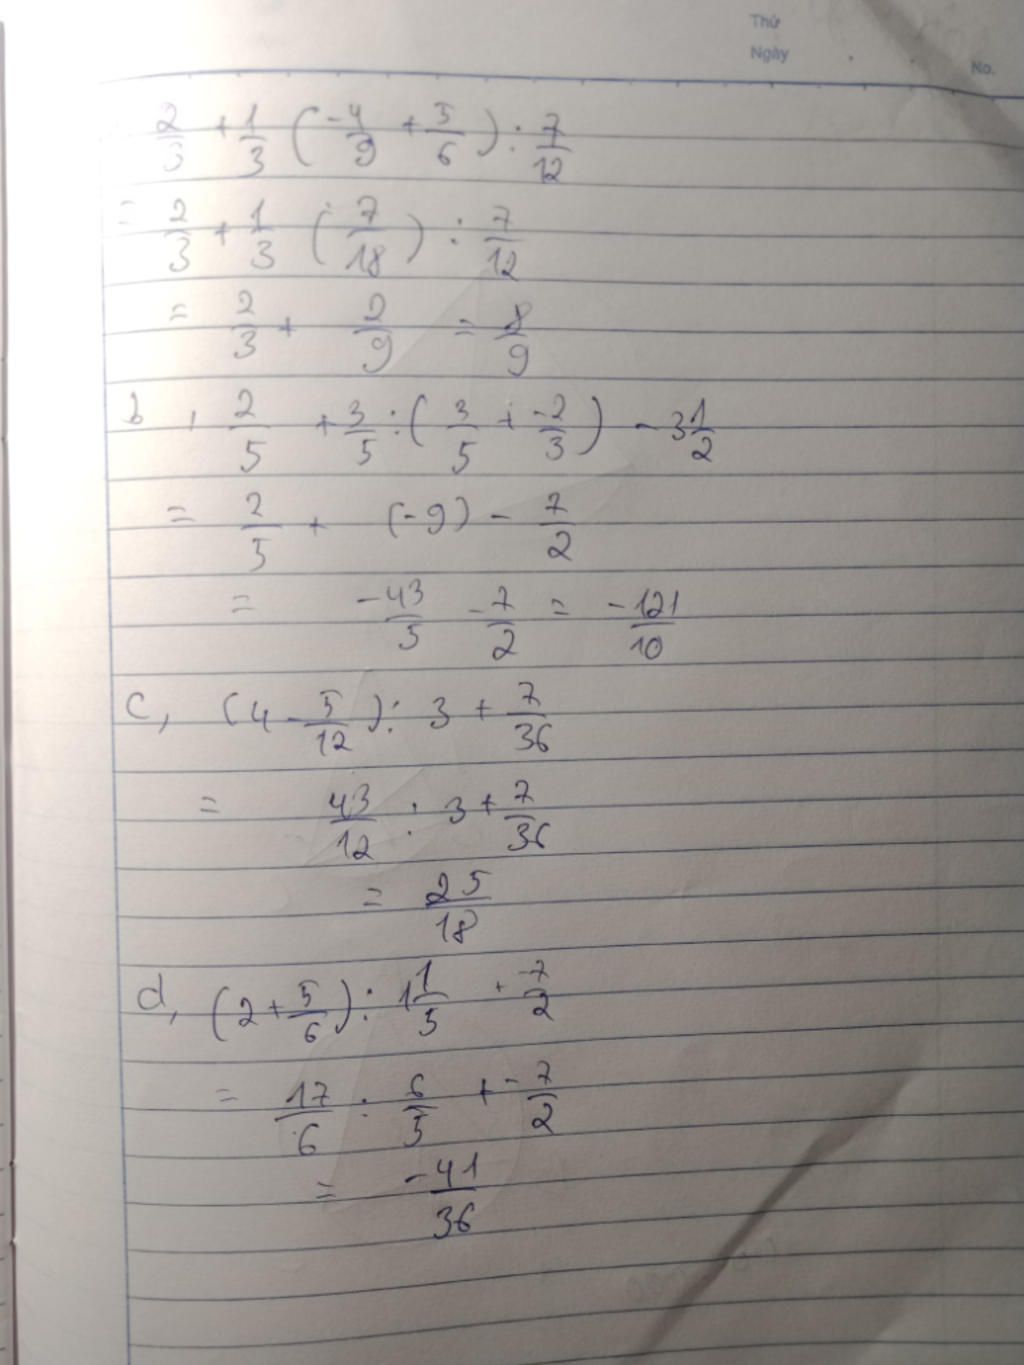 Thứ
Ngày
No.
2/3 + 1/3 (-4/9 + 5/6) : 7/12
= 2/3 + 1/3 (7/18) : 7/12
= 2/3 + 2/9 = 8/9
b, 2/5 + 3/5 : (3/5 + -2/3) - 3 1/2
= 2/5 + (-9) - 7/2
= -43/5 - 7/2 = -121/10
c, (4 - 5/12) : 3 + 7/36
= 43/12 : 3 + 7/36
= 25/18
d, (2 + 5/6) : 1 1/5 + -7/2
= 17/6 : 6/5 + -7/2
= -41/36